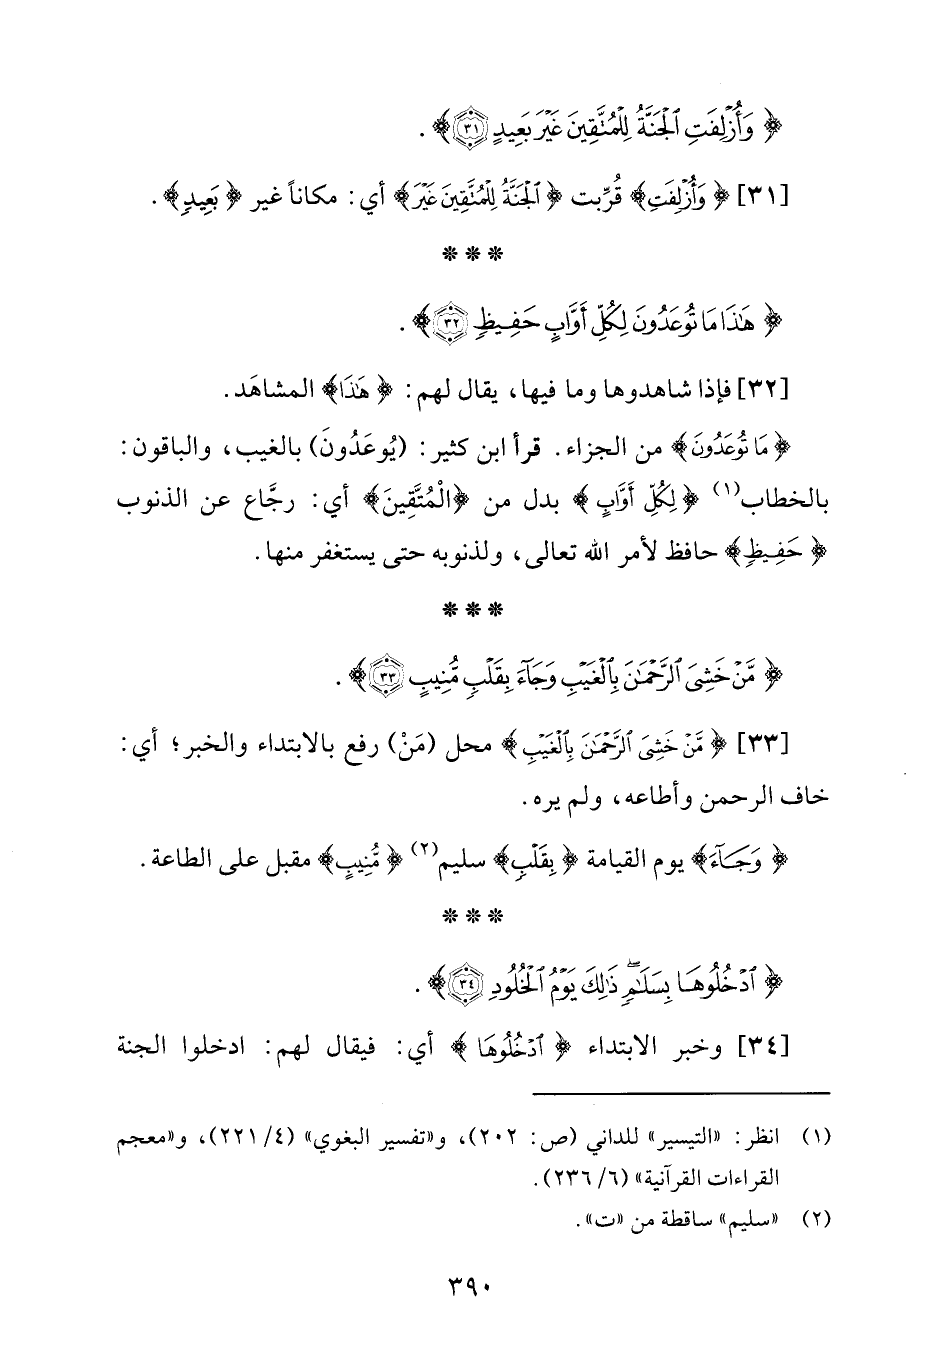 ﴿ وَأُزْلِفَتِ ٱلْجَنَّةُ لِلْمُتَّقِينَ غَيْرَ بَعِيدٍ ٣١ ﴾ .
[٣١] ﴿ وَأُزْلِفَتِ ﴾ قُرِّبت ﴿ ٱلْجَنَّةُ لِلْمُتَّقِينَ غَيْرَ ﴾ أي: مكاناً غير ﴿ بَعِيدٍ ﴾ .
* * *
﴿ هَٰذَا مَا تُوعَدُونَ لِكُلِّ أَوَّابٍ حَفِيظٍ ٣٢ ﴾ .
[٣٢] فإذا شاهدوها وما فيها، يقال لهم: ﴿ هَٰذَا ﴾ المشاهَد.
﴿ مَا تُوعَدُونَ ﴾ من الجزاء. قرأ ابن كثير: (يُوعَدُونَ) بالغيب، والباقون:
بالخطاب(١) ﴿ لِكُلِّ أَوَّابٍ ﴾ بدل من ﴿الْمُتَّقِينَ﴾ أي: رجَّاع عن الذنوب
﴿ حَفِيظٍ ﴾ حافظ لأمر الله تعالى، ولذنوبه حتى يستغفر منها.
* * *
﴿ مَّنْ خَشِيَ ٱلرَّحْمَٰنَ بِٱلْغَيْبِ وَجَآءَ بِقَلْبٍ مُّنِيبٍ ٣٣ ﴾ .
[٣٣] ﴿ مَّنْ خَشِيَ ٱلرَّحْمَٰنَ بِٱلْغَيْبِ ﴾ محل (مَنْ) رفع بالابتداء والخبر؛ أي:
خاف الرحمن وأطاعه، ولم يره.
﴿ وَجَآءَ ﴾ يوم القيامة ﴿ بِقَلْبٍ ﴾ سليم(٢) ﴿ مُّنِيبٍ ﴾ مقبل على الطاعة.
* * *
﴿ ٱدْخُلُوهَا بِسَلَٰمٍۖ ذَٰلِكَ يَوْمُ ٱلْخُلُودِ ٣٤ ﴾ .
[٣٤] وخبر الابتداء ﴿ ٱدْخُلُوهَا ﴾ أي: فيقال لهم: ادخلوا الجنة
(١) انظر: «التيسير» للداني (ص: ٢٠٢)، و«تفسير البغوي» (٤/ ٢٢١)، و«معجم
القراءات القرآنية» (٦/ ٢٣٦).
(٢) «سليم» ساقطة من «ت».
٣٩٠